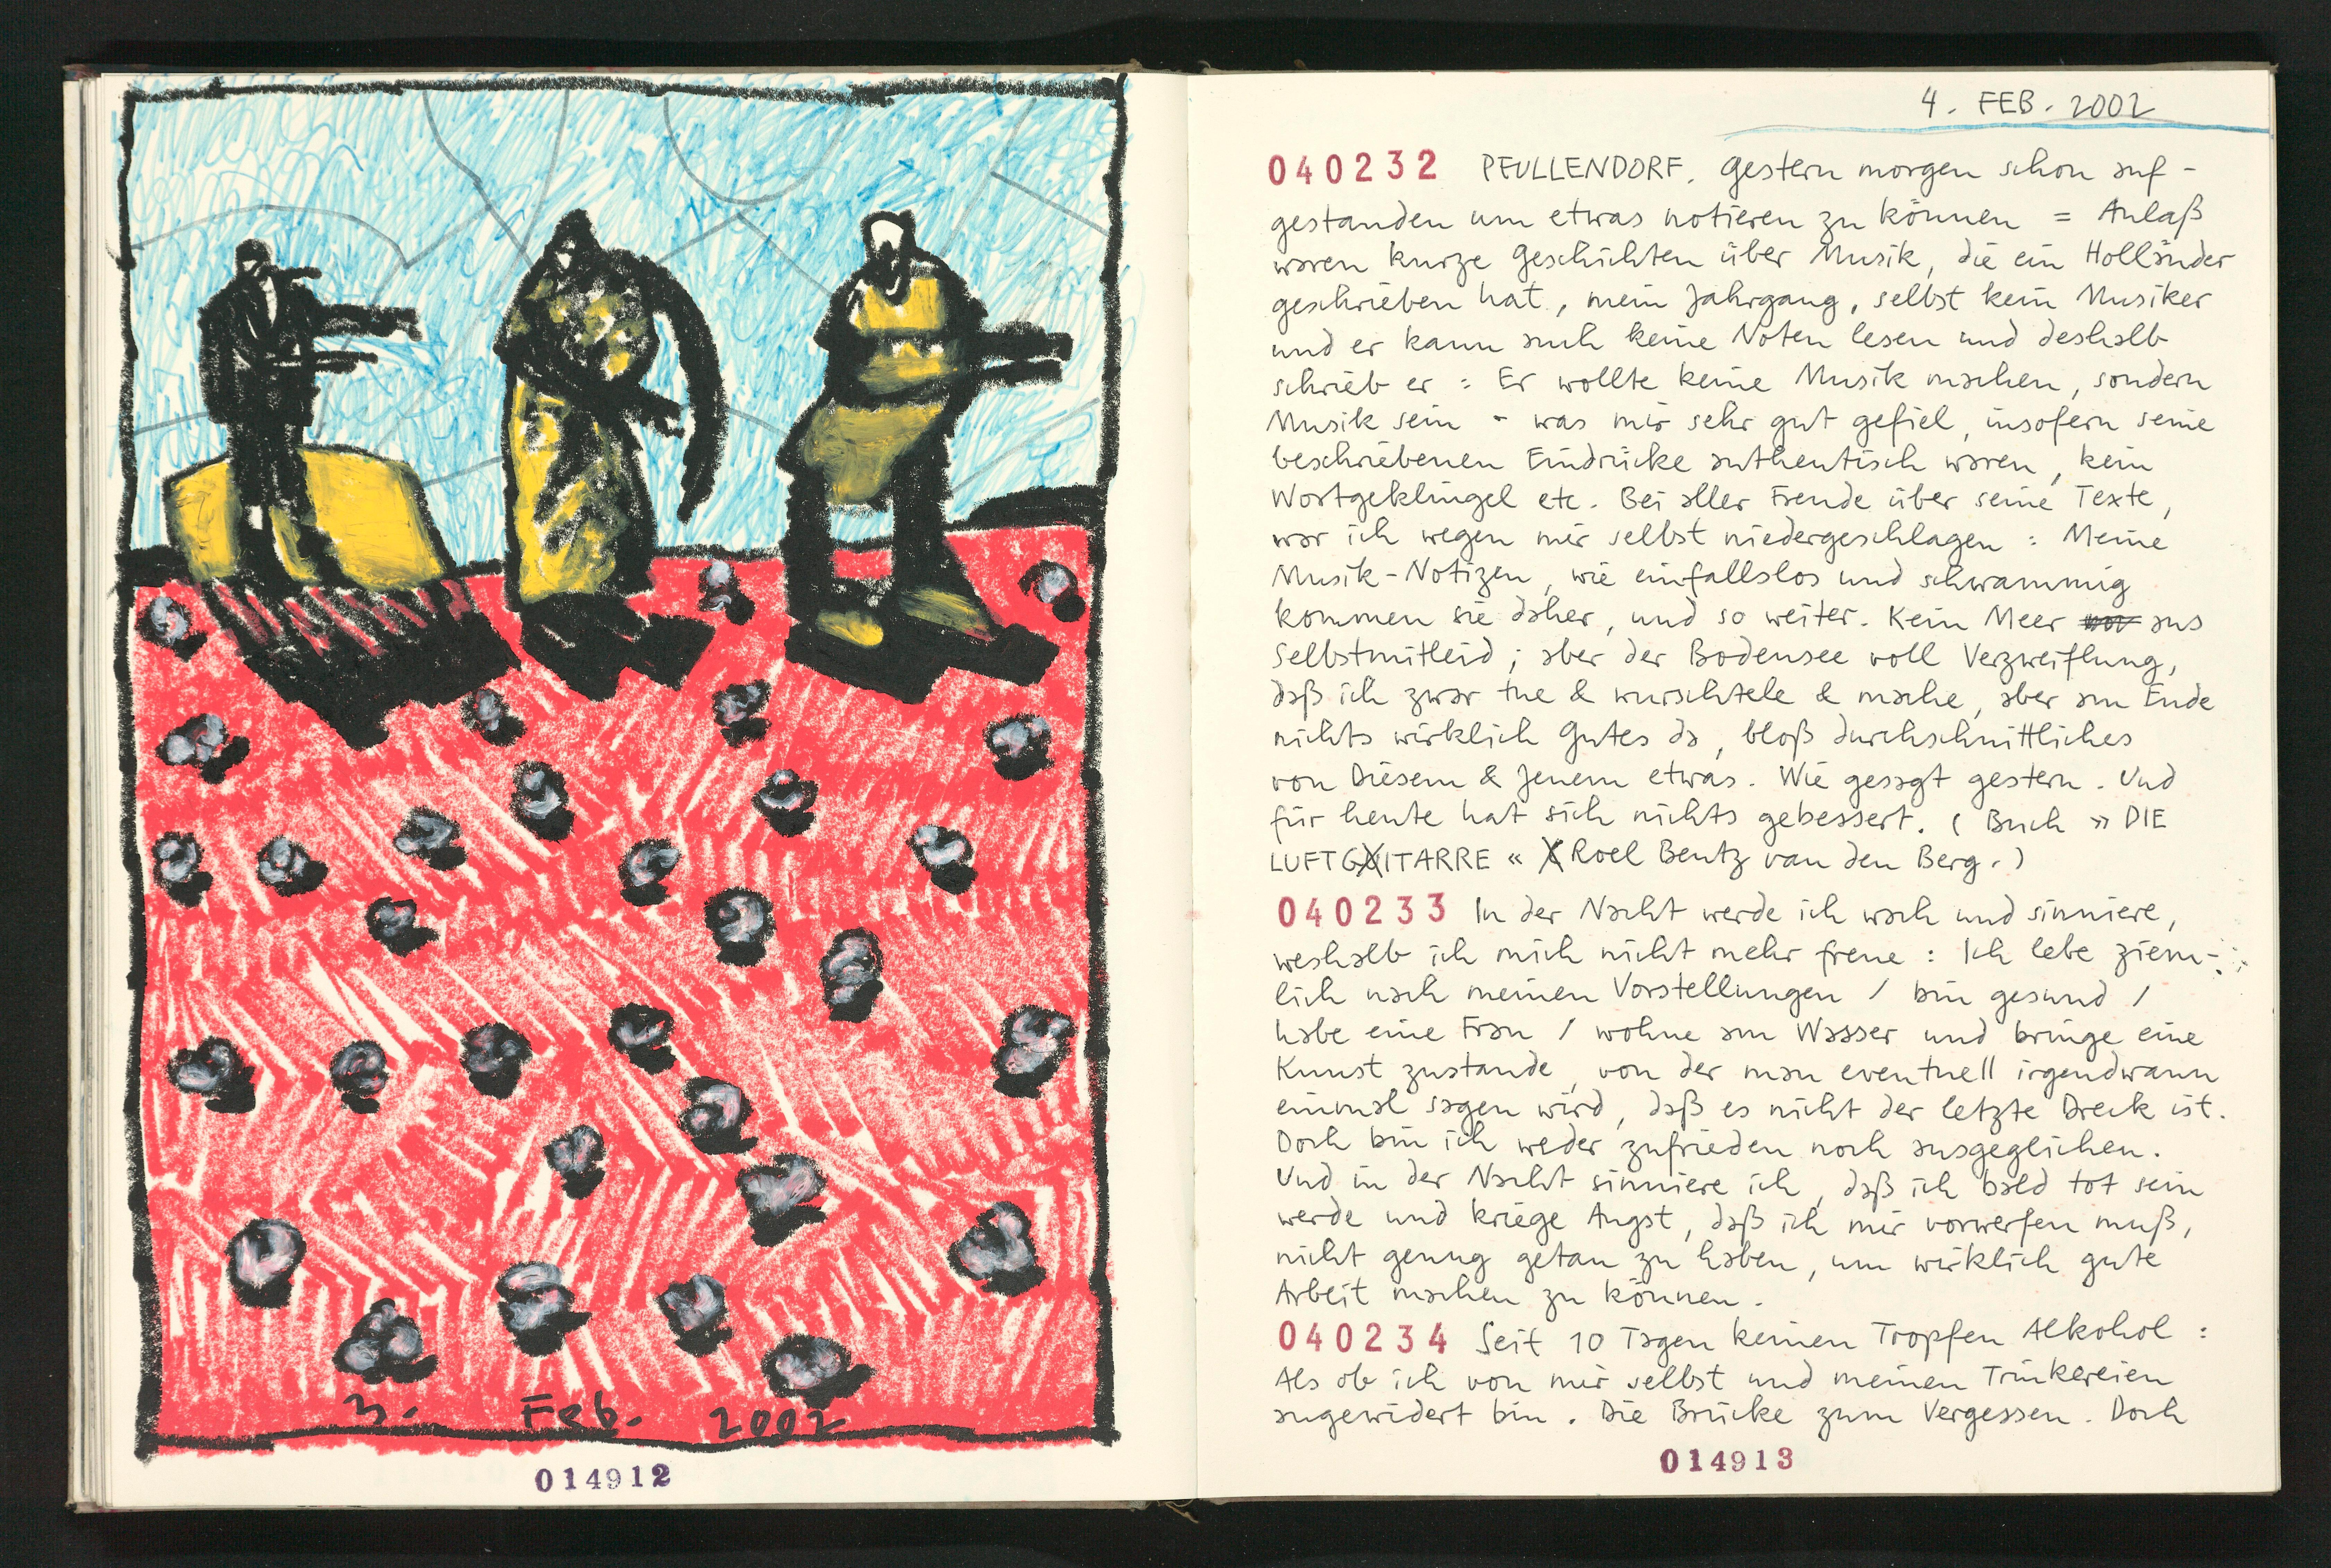 3. Feb. 2002
014912
4. FEB. 2002
040232 PFULLENDORF. Gestern morgen schon auf-
gestanden um etwas notieren zu können = Anlaß
waren kurze Geschichten über Musik, die ein Holländer
geschrieben hat, mein Jahrgang, selbst kein Musiker
und er kann auch keine Noten lesen und deshalb
schrieb er : Er wollte keine Musik machen, sondern
Musik sein - was mir sehr gut gefiel, insofern seine
beschriebenen Eindrücke authentisch waren, kein
Wortgeklingel etc. Bei aller Freude über seine Texte,
war ich wegen mir selbst niedergeschlagen : Meine
Musik-Notizen, wie einfallslos und schwammig
kommen sie daher, und so weiter. Kein Meer aus
Selbstmitleid ; aber der Bodensee voll Verzweiflung,
daß ich zwar tue & wurschtele & mache, aber am Ende
nichts wirklich Gutes da, bloß durchschnittliches
von Diesem & Jenem etwas. Wie gesagt gestern. Und
für heute hat sich nichts gebessert. ( Buch » DIE
LUFTGITARRE « Roel Bentz van den Berg. )
040233 In der Nacht werde ich wach und sinniere,
weshalb ich mich nicht mehr freue : Ich lebe ziem-
lich nach meinen Vorstellungen / bin gesund /
habe eine Frau / wohne am Wasser und bringe eine
Kunst zustande, von der man eventuell irgendwann
einmal sagen wird, daß es nicht der letzte Dreck ist.
Doch bin ich weder zufrieden noch ausgeglichen.
Und in der Nacht sinniere ich, daß ich bald tot sein
werde und kriege Angst, daß ich mir vorwerfen muß,
nicht genug getan zu haben, um wirklich gute
Arbeit machen zu können.
040234 Seit 10 Tagen keinen Tropfen Alkohol :
Als ob ich von mir selbst und meinen Trinkereien
angewidert bin. Die Brücke zum Vergessen. Doch
014913